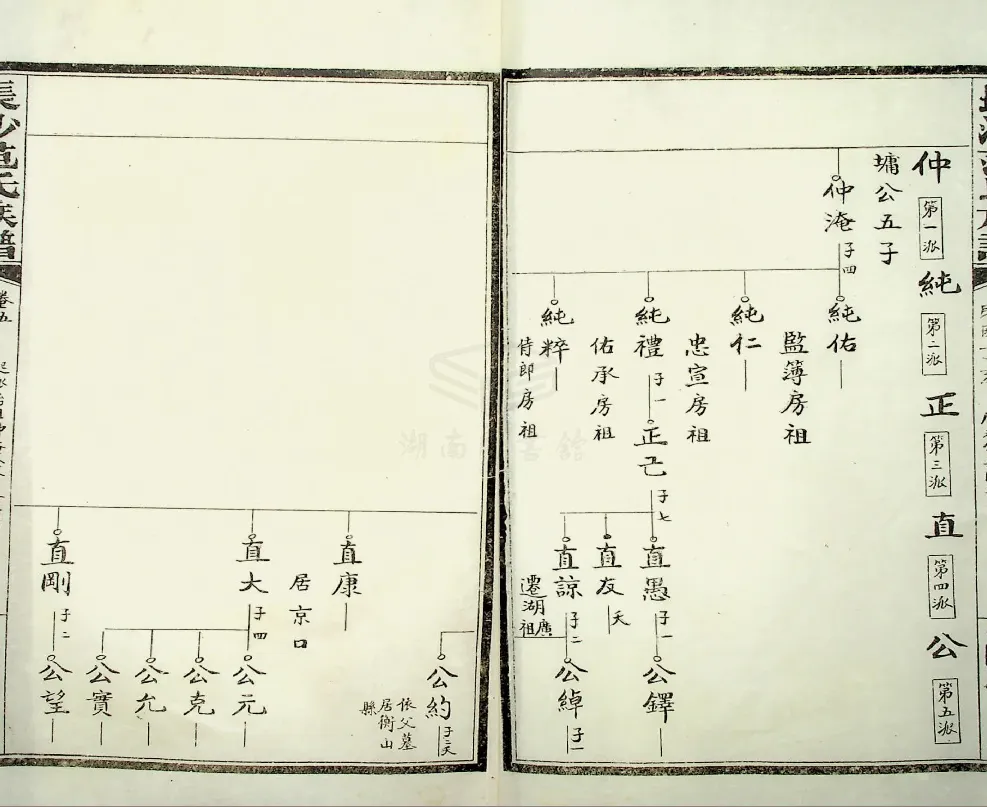 仲 第一派
純 第二派
正 第三派
直 第四派
公 第五派
墉公五子
仲淹 子四
純佑
監簿房祖
純仁
忠宣房祖
純禮 子一
佑承房祖
純粹
侍郎房祖
正己 子七
直愚 子一
直友 夭
直諒 子二
遷湖廣祖
公鐸
公綽 子一
公約 子二夭
依父墓居衡山縣
直康
居京口
直大 子四
公元
公克
公允
公實
直剛 子二
公望
長沙范氏族譜
卷五
湖南圖書館